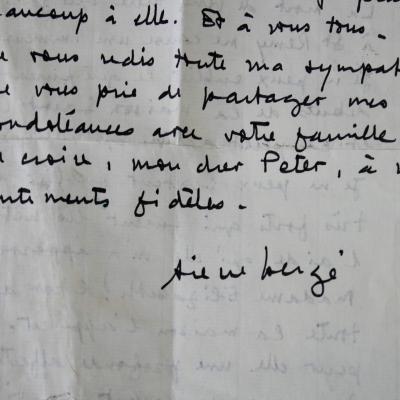 eaucoup à elle. Et à vous tous.
e vous redis toute ma sympat
e vous prie de partager mes
ondoléances avec votre famille
croire, mon cher Peter, à
ntiments fidèles.
Pierre Bergé